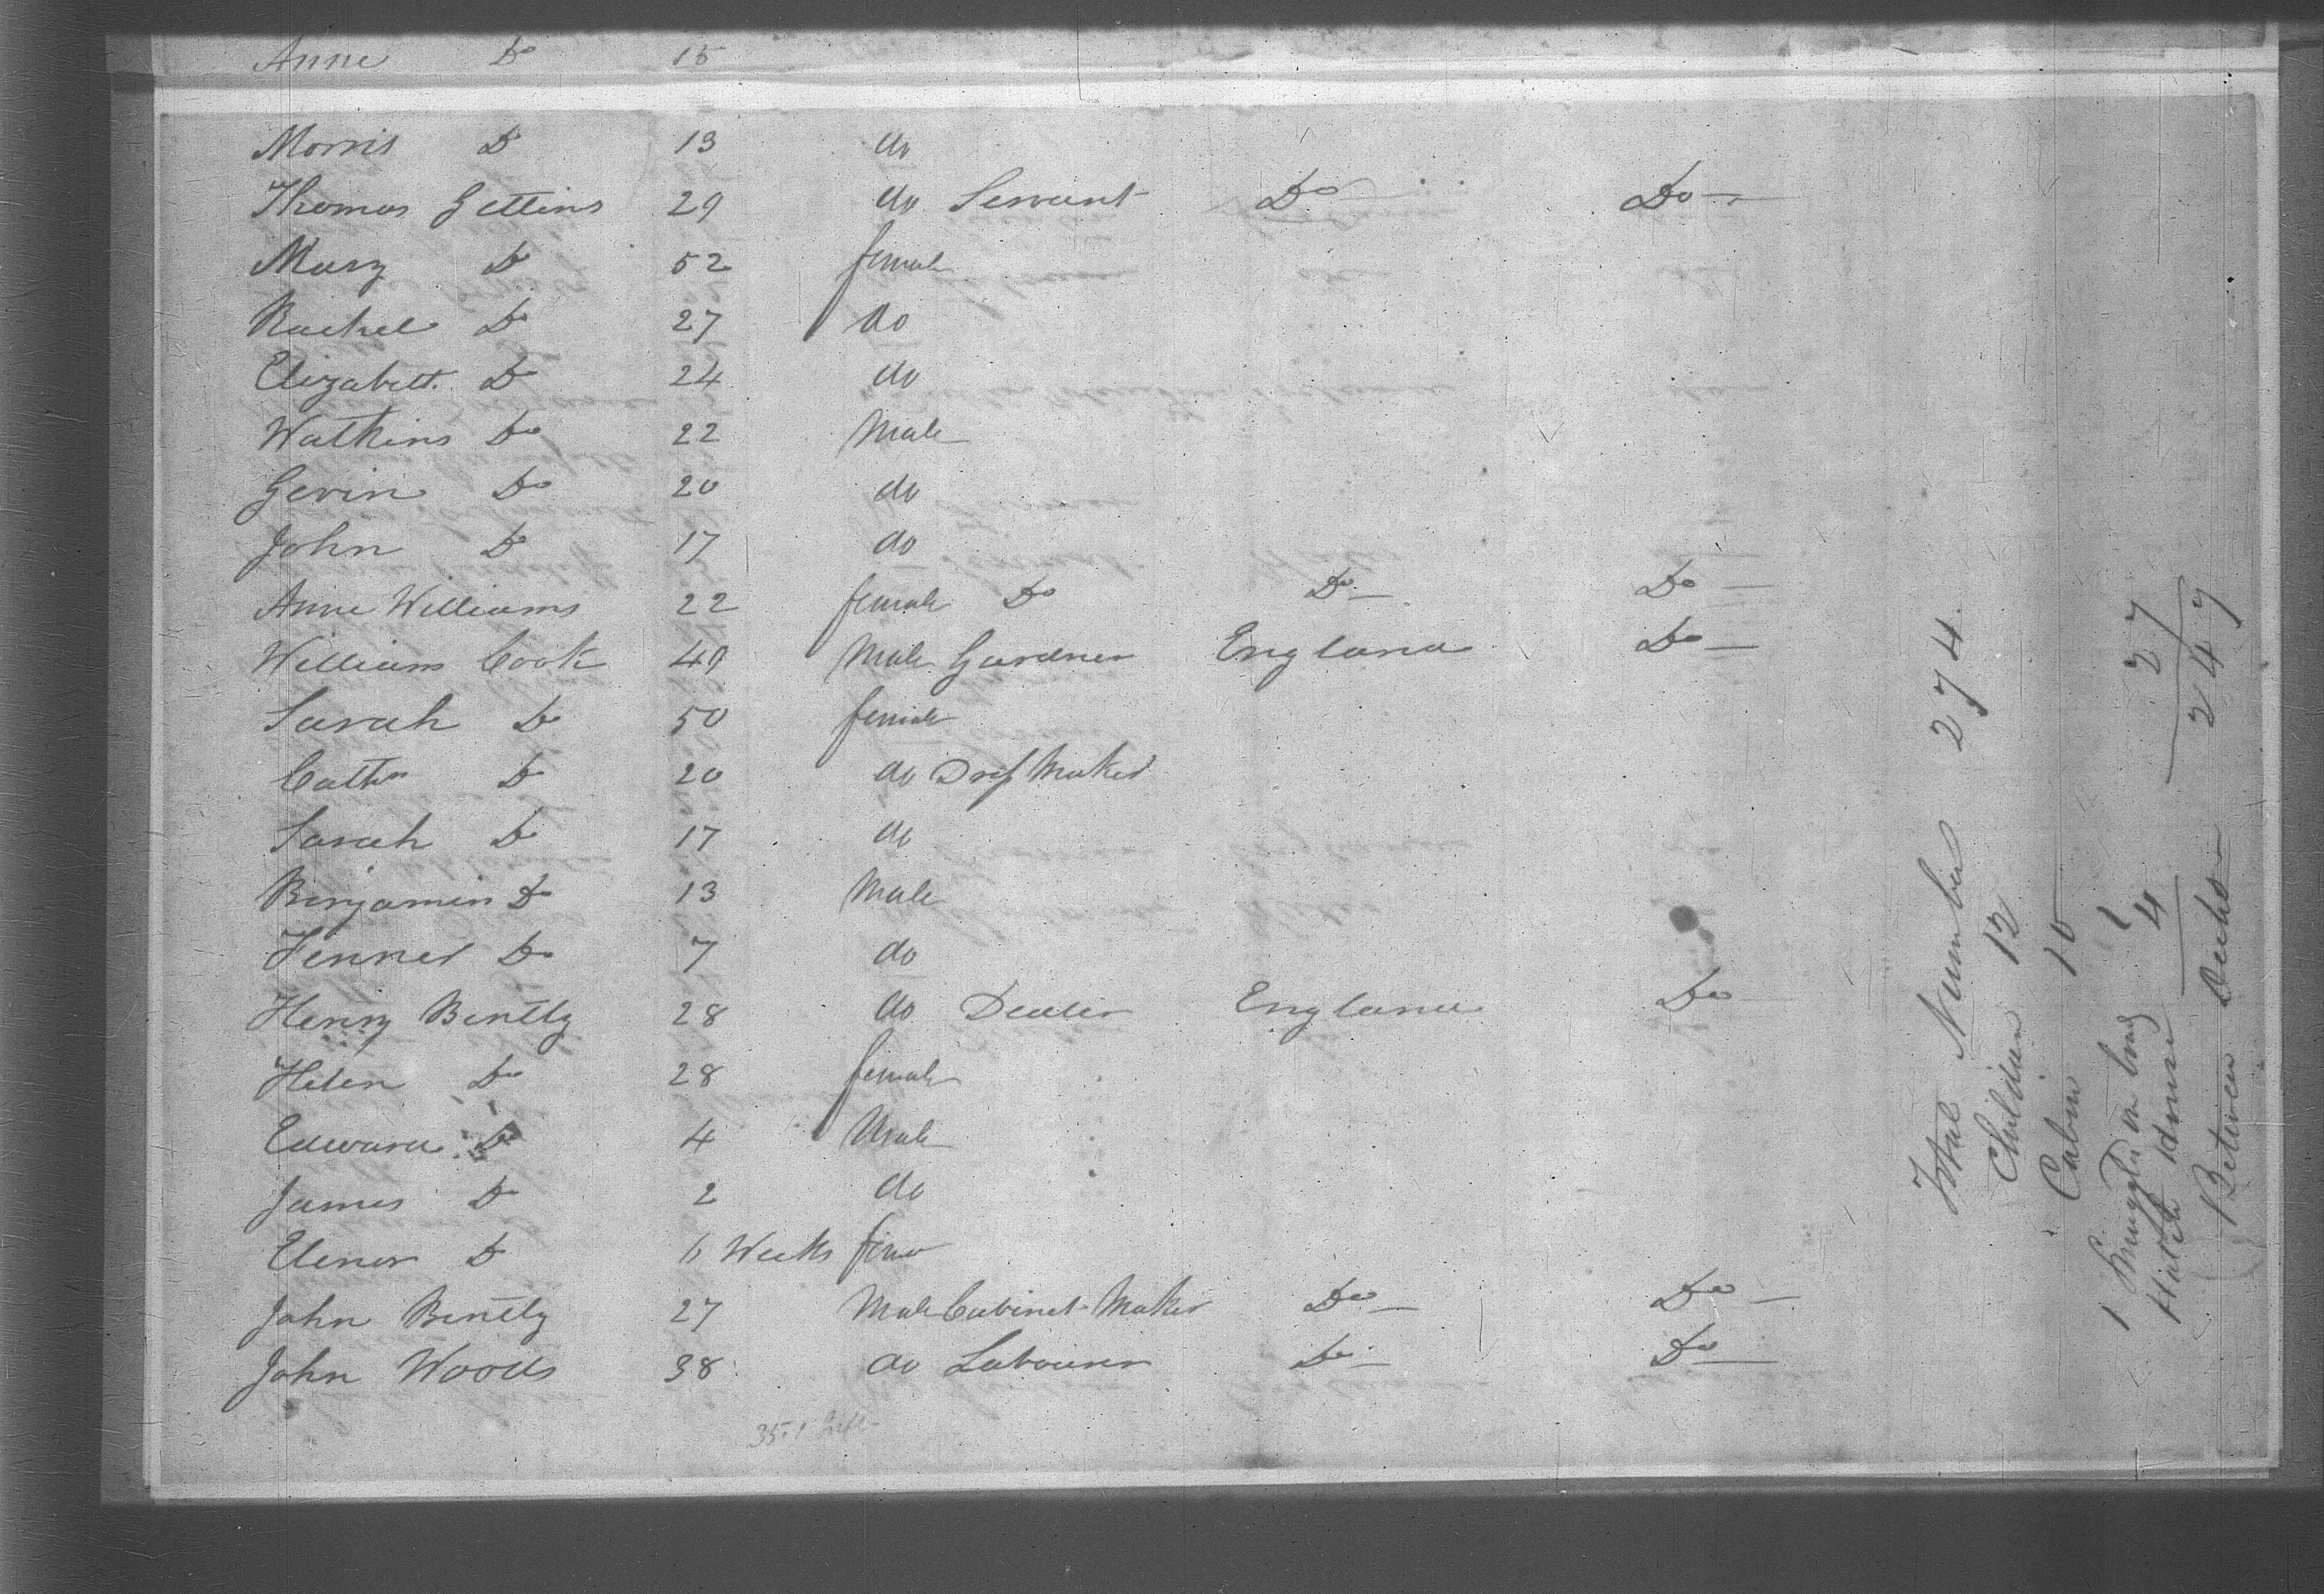 Anne Do 15
Morris Do 13 do
Thomas Gettins 29 do Servant Do Do
Mary Do 52 female
Rachel Do 27 do
Elizabeth Do 24 do
Watkins Do 22 Male
Gevin Do 20 do
John Do 17 do
Anne Williams 22 female Do Do Do
William Cook 49 Male Gardner England Do
Sarah Do 50 female
Cathn Do 20 do Dress Maker
Sarah Do 17 do
Benjamin Do 13 Male
Jenner Do 7 do
Henry Bently 28 do Dealer England Do
Helen Do 28 female
Edward Do 4 Male
James Do 2 do
Elenor Do 6 Weeks fem
John Bently 27 Male Cabinet Maker Do Do
John Woods 38 do Labourer Do Do
Total Number 274.
Children 12
Cabin 10
1 Smuggled on board 1
Hatch House 4 27
Between Decks 247